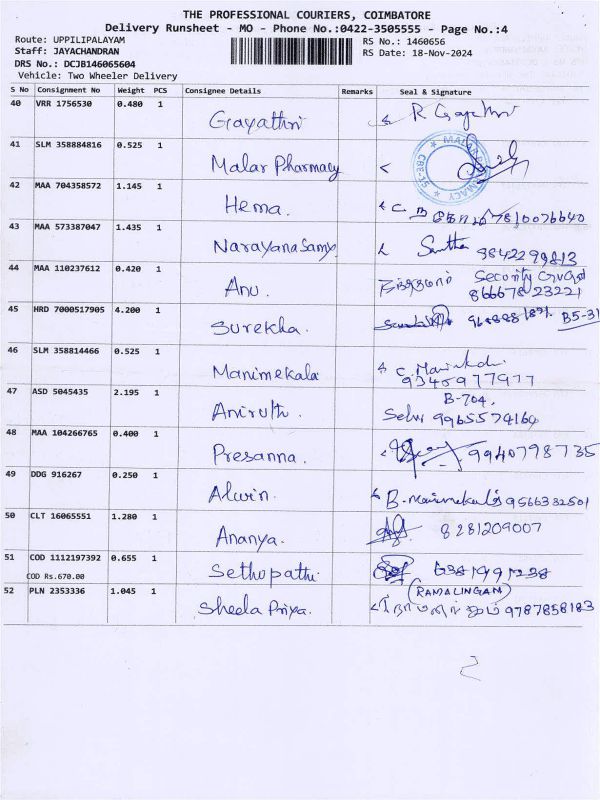 THE PROFESSIONAL COURIERS, COIMBATORE
Delivery Runsheet - MO - Phone No.:0422-3505555 - Page No.:4
Route: UPPILIPALAYAM
Staff: JAYACHANDRAN
DRS No.: DCJB146065604
Vehicle: Two Wheeler Delivery
RS No.: 1460656
RS Date: 18-Nov-2024
S No Consignment No Weight PCS Consignee Details Remarks Seal & Signature
40 VRR 1756530 0.480 1 Gayathri R Gayathri
41 SLM 358884816 0.525 1 Malar Pharmacy MALAR PHARMACY CBE-15
42 MAA 704358572 1.145 1 Hema. 7810076640
43 MAA 573387047 1.435 1 NarayanaSamy. Santha 9842299813
44 MAA 110237612 0.420 1 Anu. Security Guard
86667823221
45 HRD 7000517905 4.200 1 Surekha. B5-31
46 SLM 358814466 0.525 1 Manimekala
9345977977
47 ASD 5045435 2.195 1 Aniruth. B-704,
Selvi 9965574164
48 MAA 104266765 0.400 1 Presanna. 9940798735
49 DDG 916267 0.250 1 Alwin. 9566332501
50 CLT 16065551 1.280 1 Ananya. 8281209007
51 COD 1112197392 0.655 1 Sethupathi
COD Rs.670.00
52 PLN 2353336 1.045 1 Sheela Priya. (RAMALINGAM)
9787858183